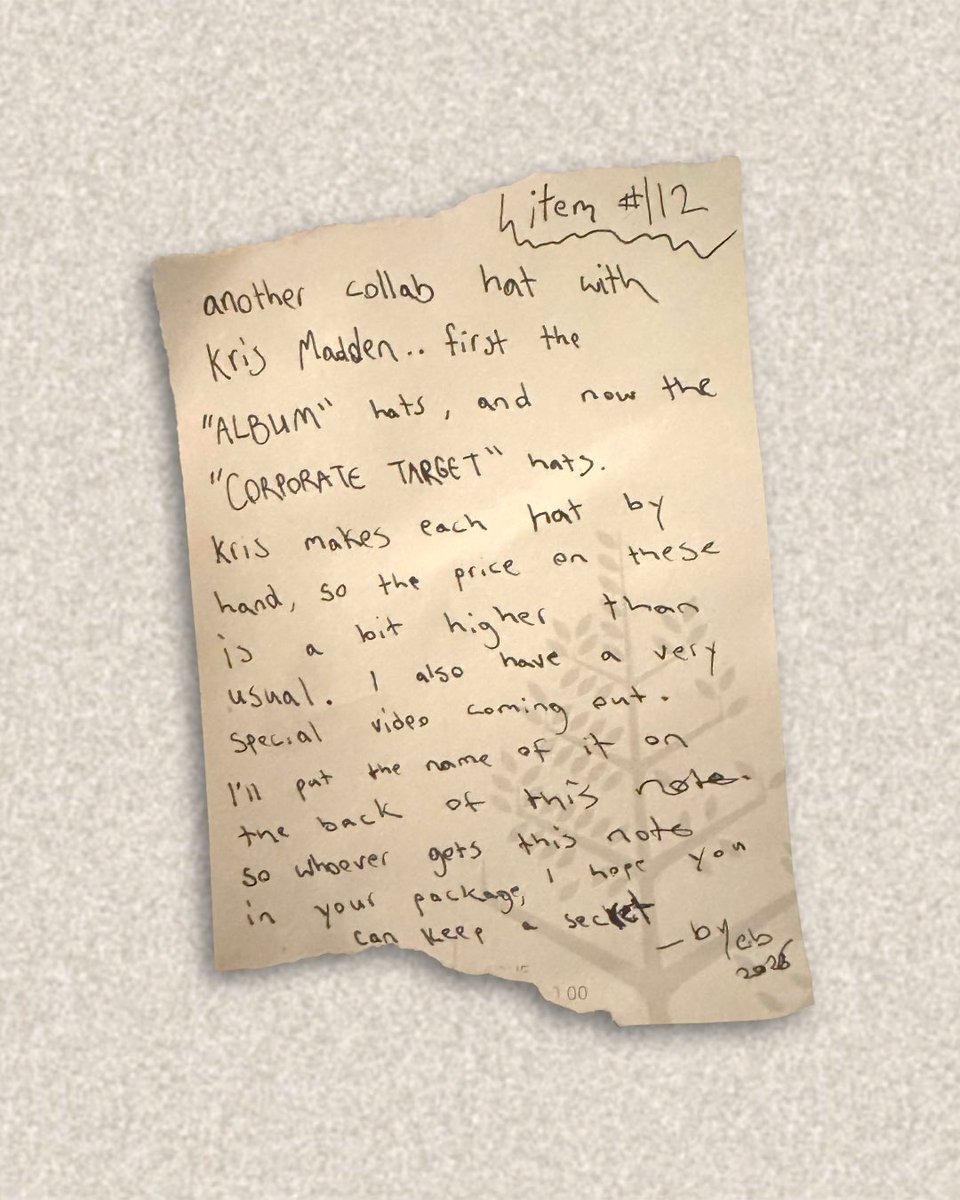 item #112
another collab hat with
Kris Madden.. first the
"ALBUM" hats, and now the
"CORPORATE TARGET" hats.
Kris makes each hat by
hand, so the price on these
is a bit higher than
usual. I also have a very
special video coming out.
I'll put the name of it on
the back of this note.
so whoever gets this note
in your package, I hope you
can keep a secret
2026
00